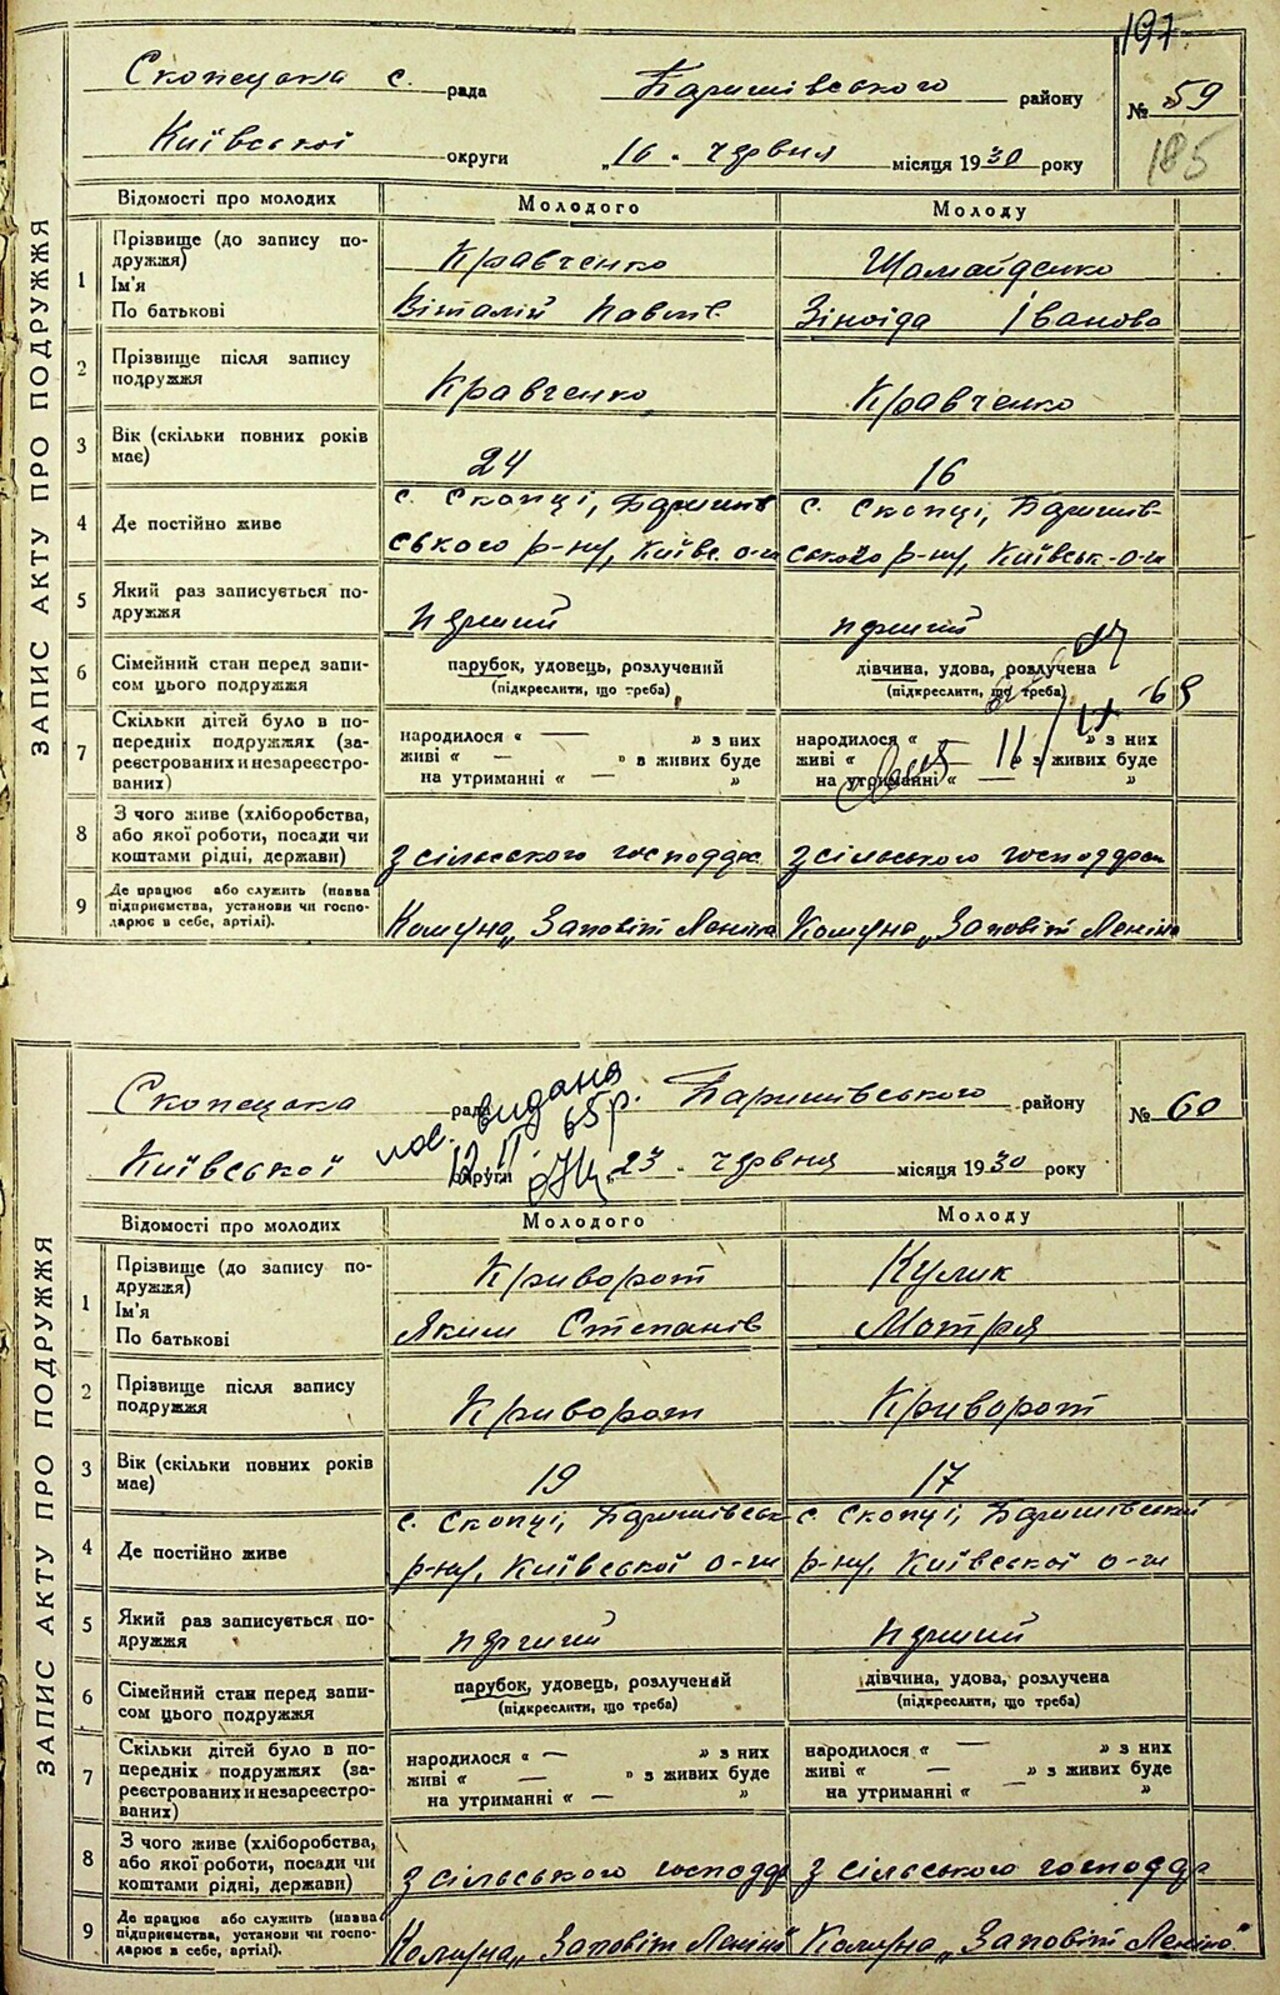 197
Скопецька с. рада Баришівського району № 59
185
Київської округи „16" червня місяця 1930 року
ЗАПИС АКТУ ПРО ПОДРУЖЖЯ
Відомості про молодих Молодого Молоду
1 Прізвище (до запису по-
дружжя) Кравченко Шамайденко
Ім'я
По батькові Віталій Павлів. Зіноіда Іванова
2 Прізвище після запису
подружжя Кравченко Кравченко
3 Вік (скільки повних років
має) 24 16
4 Де постійно живе с. Скопці, Баришів с. Скопці, Баришів-
ського р-ну, Київс. о-ги ського р-ну, Київськ. о-ги
5 Який раз записується по-
дружжя перший перший
6 Сімейний стан перед запи- парубок, удовець, розлучений дівчина, удова, розлучена
сом цього подружжя (підкреслити, що треба) (підкреслити, що треба)
7 Скільки дітей було в по-
передніх подружжях (за-
реєстрованих и незареєстро-
ваних)
народилося « — » з них народилося « — » з них
живі « — » в живих буде живі « » з живих буде
на утриманні « — » на утриманні « — »
8 З чого живе (хліборобства,
або якої роботи, посади чи
коштами рідні, держави) З сільського господар. З сільського господарст
9 Де працює або служить (назва
підприємства, установи чи госпо-
дарює в себе, артілі). Комуна „Заповіт Леніна Комуна „Заповіт Леніна
Скопецька рада Баришівського району № 60
видана
65 р.
Київської округи „23" червня місяця 1930 року
ЗАПИС АКТУ ПРО ПОДРУЖЖЯ
Відомості про молодих Молодого Молоду
1 Прізвище (до запису по-
дружжя) Криворот Кулик
Ім'я
По батькові Яким Степанів Мотря
2 Прізвище після запису
подружжя Криворот Криворот
3 Вік (скільки повних років
має) 19 17
4 Де постійно живе с. Скопці, Баришівськ с. Скопці, Баришівської
р-ну, Київської о-ги р-ну, Київської о-ги
5 Який раз записується по-
дружжя перший перший
6 Сімейний стан перед запи- парубок, удовець, розлучений дівчина, удова, розлучена
сом цього подружжя (підкреслити, що треба) (підкреслити, що треба)
7 Скільки дітей було в по-
передніх подружжях (за-
реєстрованих и незареєстро-
ваних)
народилося « — » з них народилося « — » з них
живі « — » з живих буде живі « — » з живих буде
на утриманні « — » на утриманні « — »
8 З чого живе (хліборобства,
або якої роботи, посади чи
коштами рідні, держави) З сільського господар З сільського господар
9 Де працює або служить (назва
підприємства, установи чи госпо-
дарює в себе, артілі). Комуна „Заповіт Леніна" Комуна „Заповіт Леніна"